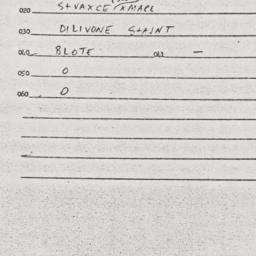 020 STVAXCE
030 DILIVONE STAINT
040 BLOTE 041 —
050 0
060 0